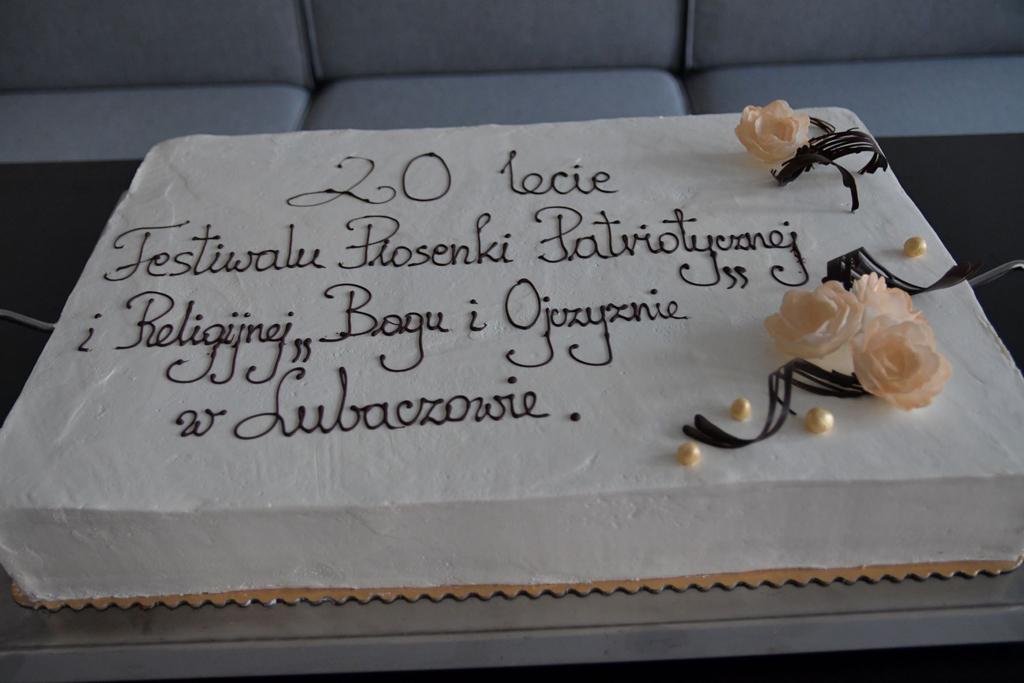 20 lecie
Festiwalu Piosenki Patriotycznej
i Religijnej „ Bogu i Ojczyznie „
w Lubaczowie .